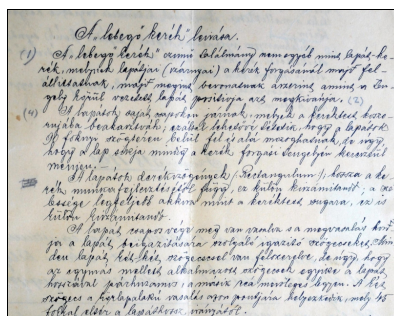 A „lebegő kerék" leírása.
(1) A „lebegő kerék" című találmány nem egyéb mint lapát-ke-
rék, melynek lapátjai (szárnyai) a kerék forgásánál majd fel-
állíttatnak, majd megint bevonatnak aszerint amint a ten-
gely körül vezetett lapát pozitiója azt megkívánja. (2)
(4) A lapátok saját csapokon járnak, melyek a keréktest koszo-
rújába beakasztvák; ezáltal lehetővé tétetik, hogy a lapátok
90 foknyi szögteren belül fel és alá mozoghatnak, de úgy,
hogy a lap síkja mindig a kerék forgási tengelyén keresztül
menjen.
A lapátok derékszögények (Rectangulum); hossza a ke-
rék munka fejlesztésétől függ, ez külön kiszámítandó; a szé-
lessége legfeljebb akkora mint a keréktest sugara, ez is
külön kiszámítandó.
A lapát csapos vége meg van vasalva s a megvasalás hord-
ja a lapát beigazítására szolgáló igazító szögecseket. Min-
den lapát két-két szögeccsel van felszerelve, de úgy, hogy
az egymás mellett alkalmazott szögecsek egyike a lapát
hosszával párhuzamos, a másik reá merőleges legyen. A két
szögecs a körlapalakú vasalás azon pontjára helyezkedik, mely 45
fokkal eltér a lapáthossz irányától.